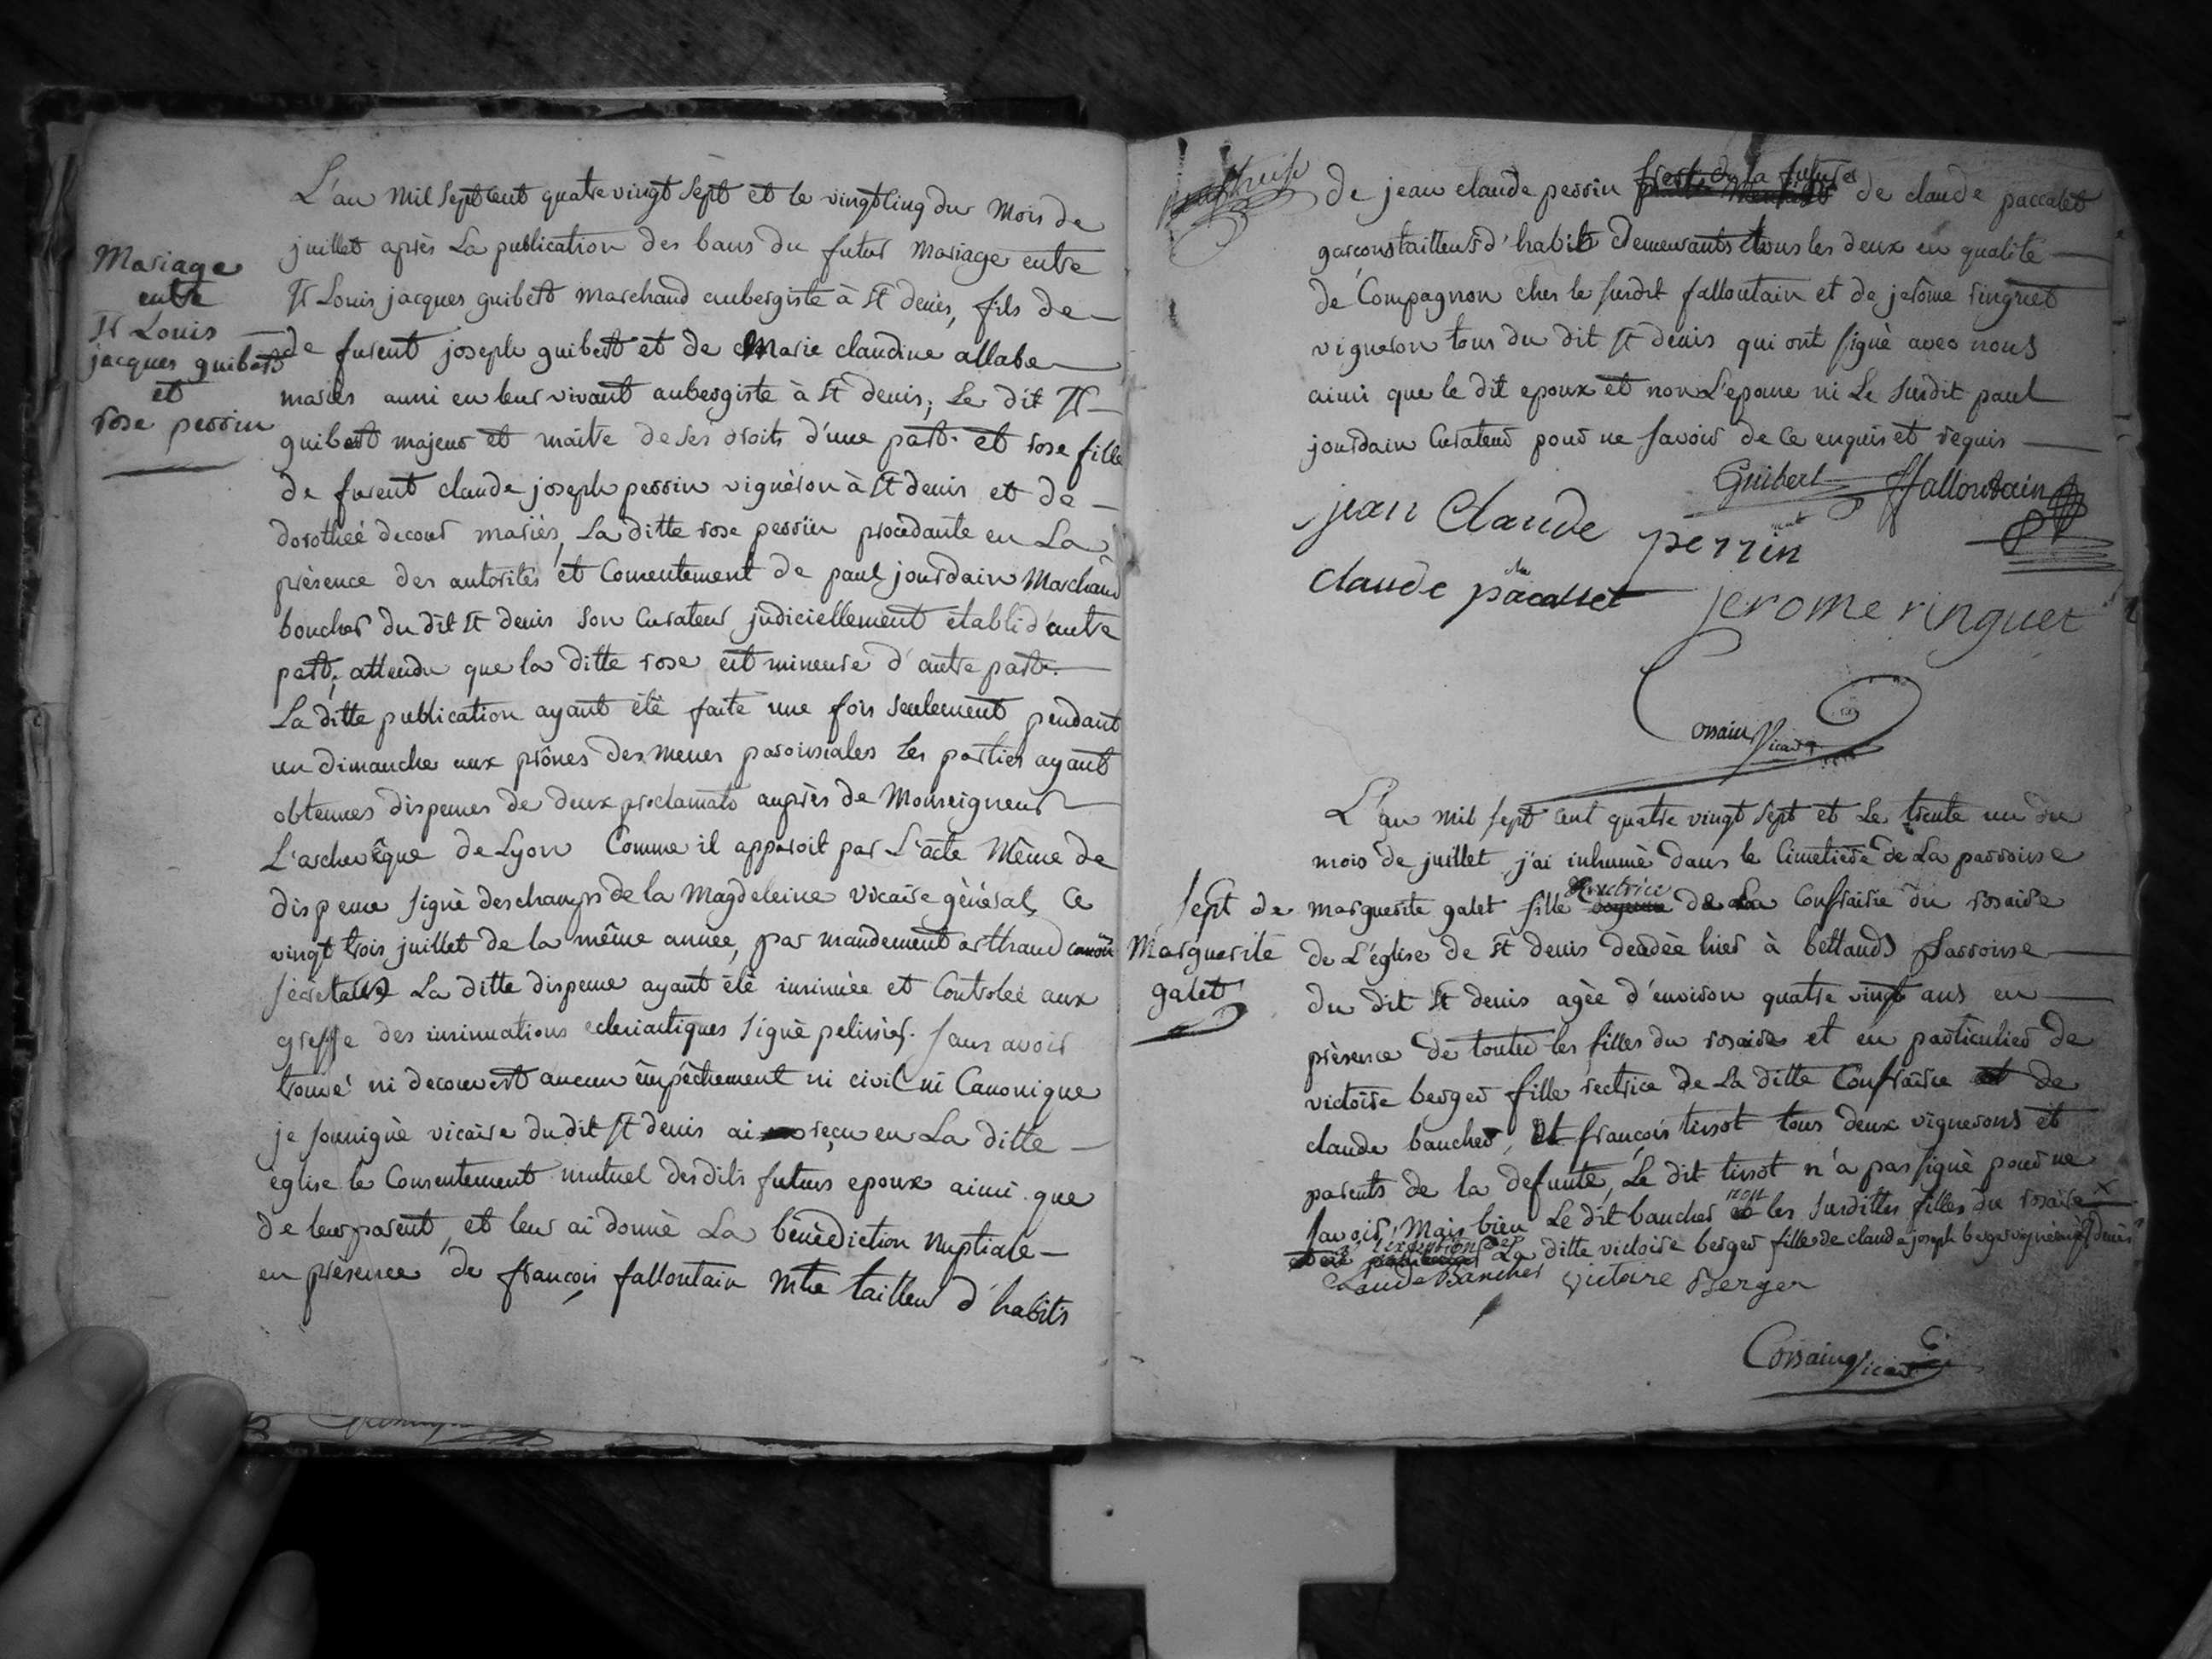 L'an mil sept cent quatre vingt sept et le vingt cinq du mois de
juillet après La publication des bans du futur Mariage entre
Sr Louis jacques guibert marchand aubergiste à St denis, fils de
de furent joseph guibert et de Marie claudine allabe
mariés aussi en leur vivant aubergiste à St denis; Le dit Sr
guibert majeur et maitre de ses droits d'une part. et rose fille
de furent claude joseph perrin vigneron à St denis et de
dorotheé decour mariés, La ditte rose perrin procédante en La
présence des autorités et Consentement de paul jourdain Marchand
boucher du dit St denis son Curateur judiciellement établi d'autre
part, attendu que la ditte rose est mineure d'autre part.
La ditte publication ayant été faite une fois seulement pendant
un dimanche aux prônes des messes paroissiales Les parties ayant
obtenues dispenses de deux proclamats auprès de Monseigneur
L'archevêque de Lyon Comme il apparoit par L'acte Même de
dispense signé deschamps de la Magdeleine vicaire général, Ce
vingt trois juillet de la même année, par mandement arthaud
sécretaire La ditte dispense ayant été insinuée et Controleé aux
greffe des insinuations eclesiastiques signé pelissier. sans avoir
trouvé ni decouvert aucun êmpéchement ni civil ni Canonique
je soussigné vicaire du dit St denis ai reçu en La ditte
église le Consentement mutuel des dits futurs epoux ainsi que
de leur parent, et leur ai donné La bénédiction nuptiale
en présence de françois falloutain Mtre tailleur d'habits
Mariage
entre
Sr Louis
jacques guibert
et
rose perrin
de jean claude perrin frere de la future de claude paccalet
garçons tailleurs d'habits demeurants tous les deux en qualité
de Compagnon ches le susdit falloutain et de jerôme ringuet
vigneron tous du dit St denis qui ont signé avec nous
ainsi que le dit epoux et non L'epouse ni Le susdit paul
jourdain Curateur pour ne savoir de Ce enquis et requis
Guibert ffalloutain
jean Claude perrin
claude pacallet jerome ringuet
Cossain Vicaire
L'an mil sept cent quatre vingt sept et Le trente un du
mois de juillet, j'ai inhumé dans le Cimetière de La parroisse
marguerite galet fille rectrice de La Confrairie du rosaire
de L'église de St denis décédée hier à bettands Parroisse
du dit St denis agée d'environ quatre vingt ans en
présence de toutes les filles du rosaire et en particulier de
victoire berger fille rectrice de La ditte Confrairie de
claude baucher, Et françois tissot tous deux vignerons et
parents de la defunte, Le dit tissot n'a pas signé pour ne
savoir, Mais bien Le dit baucher non les susdittes filles du rosaire
l'exception de La ditte victoire berger fille de claude joseph berger vigneron à St denis
Claude Bancher victoire Berger
Cossain Vicaire
Sept de
Marguerite
galet